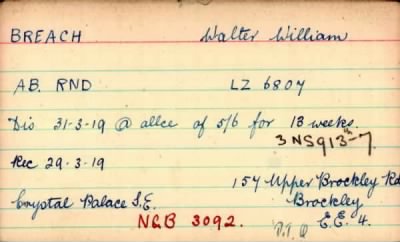 BREACH Walter William
AB. RND LZ 6807
Dis 31-3-19 @ allce of 5/6 for 13 weeks.
3 NS 913-7
Rec 29-3-19
157 Upper Brockley Rd
Crystal Palace S.E. Brockley
N&B 3092. P.T.O S.E. 4.